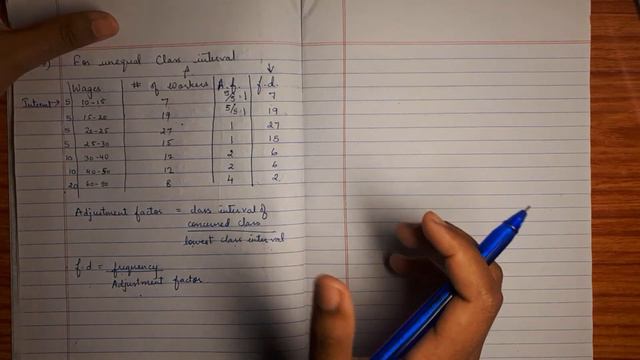 For unequal Class interval
Wages # of Workers A.f. f.d.
Interval → 5 10-15 7 5/5=1 7
5 15-20 19 5/5=1 19
5 20-25 27 1 27
5 25-30 15 1 15
10 30-40 12 2 6
10 40-50 12 2 6
20 60-80 8 4 2
Adjustment factor = class interval of
concerned class
lowest class interval
f.d = frequency
Adjustment factor